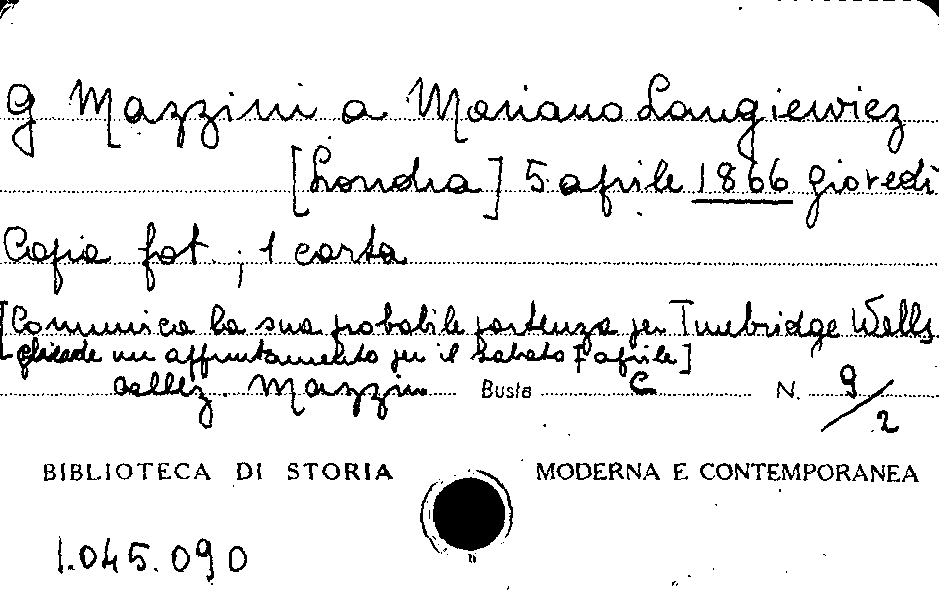 G Mazzini a Mariano Langiewiez
[Londra] 5 aprile 1866 giovedì
Copia fot. ; 1 carta
[Comunica la sua probabile partenza per Tunebridge Wells
chiede un appuntamento per il sabato [aprile]
collez. Mazzini Busta C N. 9/2
BIBLIOTECA DI STORIA MODERNA E CONTEMPORANEA
1.045.090